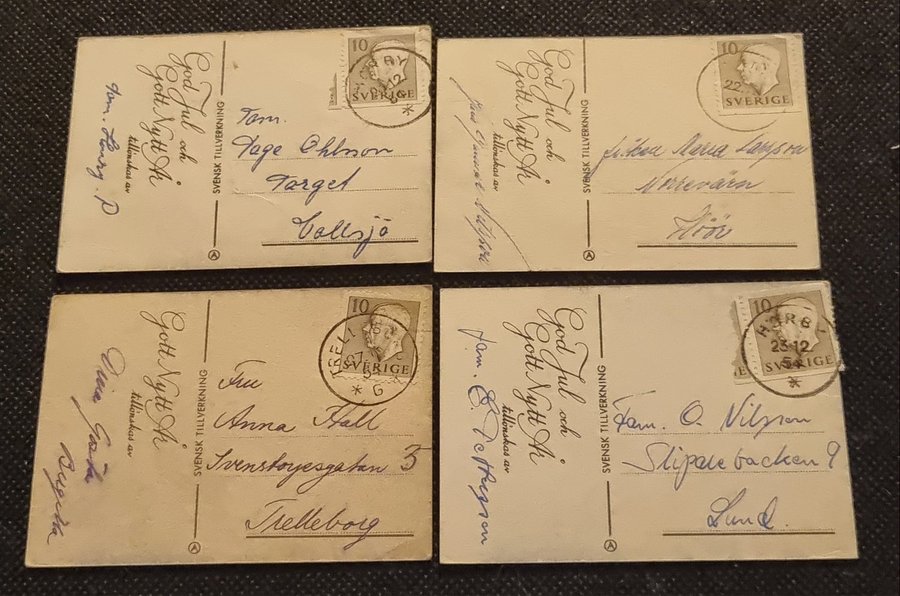 God Jul och
Gott Nytt År
tillönskas av
SVENSK TILLVERKNING
A
10
SVERIGE
Fam.
Tage Ohlsson
Torget
Collsjö
God Jul och
Gott Nytt År
tillönskas av
SVENSK TILLVERKNING
A
10
22
SVERIGE
fröken Maria Larsson
Norrevärn
Höör
Gott Nytt År
tillönskas av
Gösta
Birgitta
SVENSK TILLVERKNING
A
10
SVERIGE
Fru
Anna Hall
Svenstorpsgatan 3
Trelleborg
God Jul och
Gott Nytt År
tillönskas av
fam. E. Pettersson
SVENSK TILLVERKNING
A
10
HÖRBY
23 12
54
SVERIGE
Fam. O. Nilsson
Sliparebacken 9
Lund.